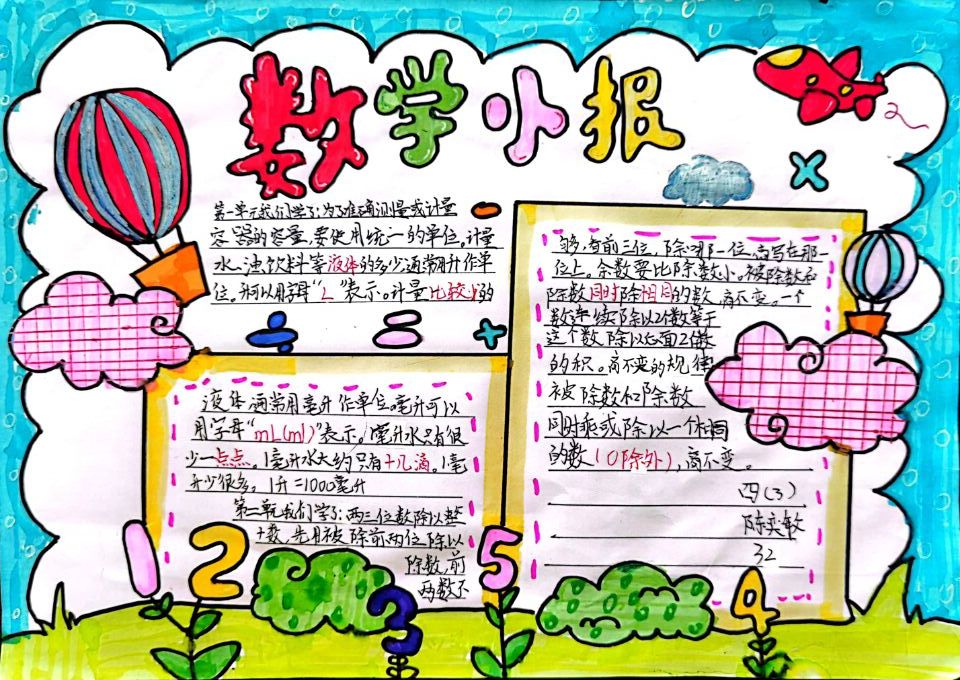 数学小报
第一单元我们学了:为了准确测量或计量
容器的容量,要使用统一的单位。计量
水、油、饮料等液体的多少,通常用升作单
位。升可以用字母“L”表示。计量比较少的
液体通常用毫升作单位。毫升可以
用字母“mL(ml)”表示。1毫升水只有很
少一点点。1毫升水大约只有十几滴。1毫
升少很多,1升=1000毫升
第二单元我们学了:两三位数除以整
十数,先用被除前两位除以
除数,前
两数不
够,看前三位,除到哪一位,商写在那一
位上。余数要比除数小。被除数和
除数同时除相同的数,商不变。一个
数连续除以2个数等于
这个数除以后面2个数
的积。商不变的规律
被除数和除数
同时乘或除以一个相同
的数(0除外),商不变。
四(3)
陈奕
32
1
2
3
5
4